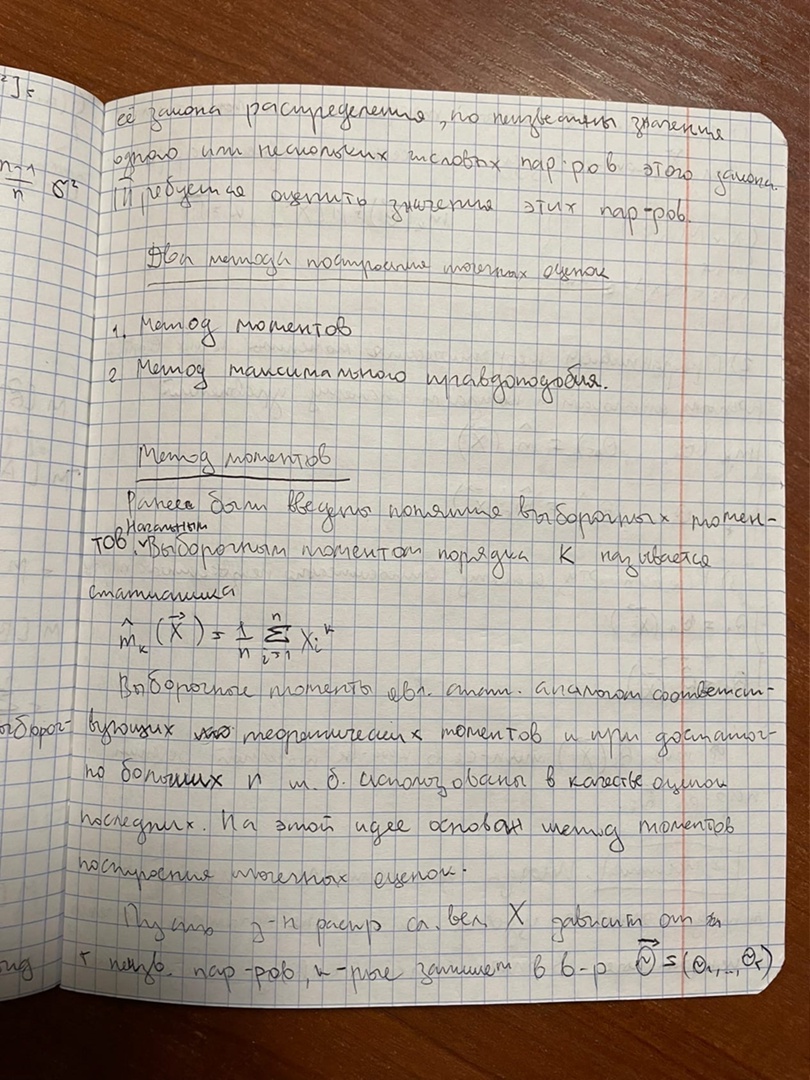 ²]=
n-1/n σ²
её закона распределения, но неизвестны значения
одного или нескольких числовых пар-ров этого закона.
Требуется оценить значения этих пар-ров.
Два метода построения точечных оценок
1. Метод моментов
2 Метод максимального правдоподобия.
Метод моментов
Ранее были введены понятие выборочных момен-
Начальным
тов. Выборочным моментом порядка K называется
статистика
m̂ₖ(X⃗) = 1/n Σⁿᵢ₌₁ Xᵢᵏ
Выборочные моменты явл. стат. аналогом соответст-
ыборог-
вующих теоретических моментов и при достаточ-
но больших n м. б. использованы в качестве оценок
последних. На этой идее основан метод моментов
построения точечных оценок.
Пусть з-н распр сл. вел. X зависит от
r неизв. пар-ров, к-рые запишем в в-р Θ⃗ = (Θ₁,..,Θᵣ)